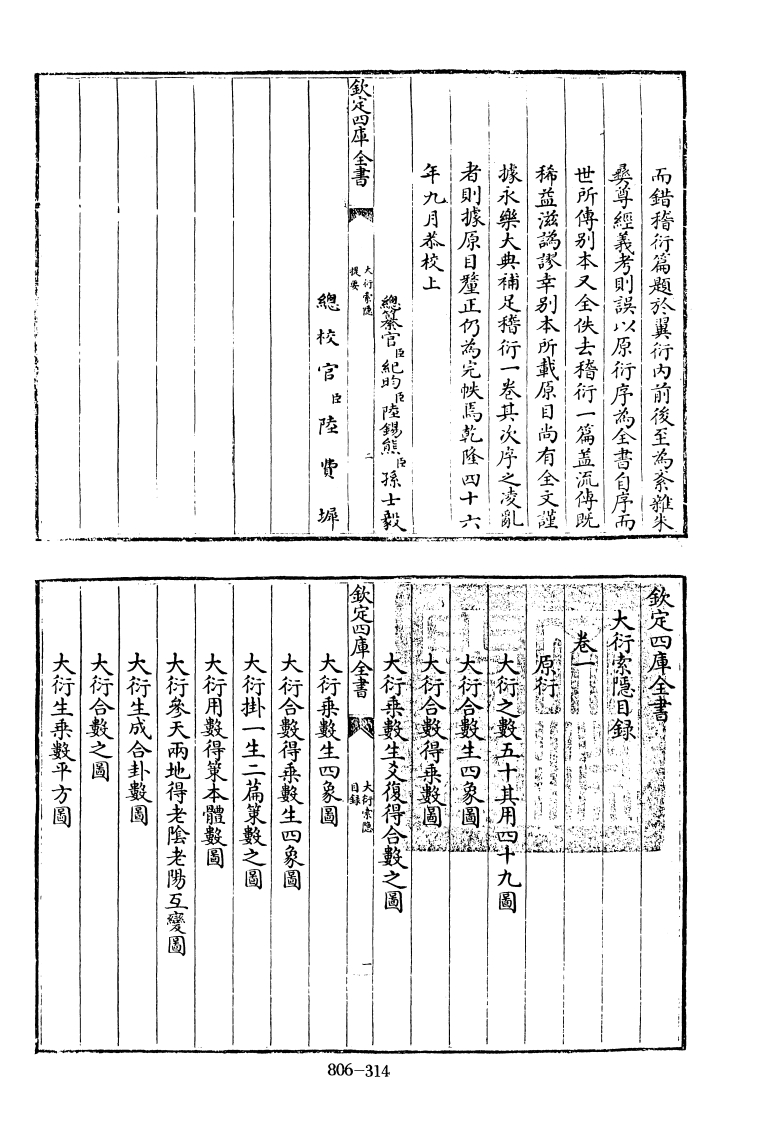 而錯稽衍篇題於翼衍内前後至為紊雜朱
彛尊經義考則誤以原衍序為全書自序而
世所傳别本又全佚去稽衍一篇盖流傳既
稀益滋譌謬幸别本所載原目尚有全文謹
據永樂大典補足稽衍一卷其次序之凌亂
者則據原目釐正仍為完帙焉乾隆四十六
年九月恭校上
總纂官臣紀昀臣陸錫熊臣孫士毅
欽定四庫全書
大衍索隱
提要
二
總校官臣陸費墀
欽定四庫全書
大衍索隱目録
卷一
原衍
大衍之數五十其用四十九圖
大衍合數生四象圖
大衍合數得乘數圖
大衍乘數生爻復得合數之圖
欽定四庫全書
大衍索隱
目録
一
大衍乘數生四象圖
大衍合數得乘數生四象圖
大衍掛一生二篇策數之圖
大衍用數得策本體數圖
大衍參天兩地得老陰老陽互變圖
大衍生成合卦數圖
大衍合數之圖
大衍生乘數平方圖
806-314